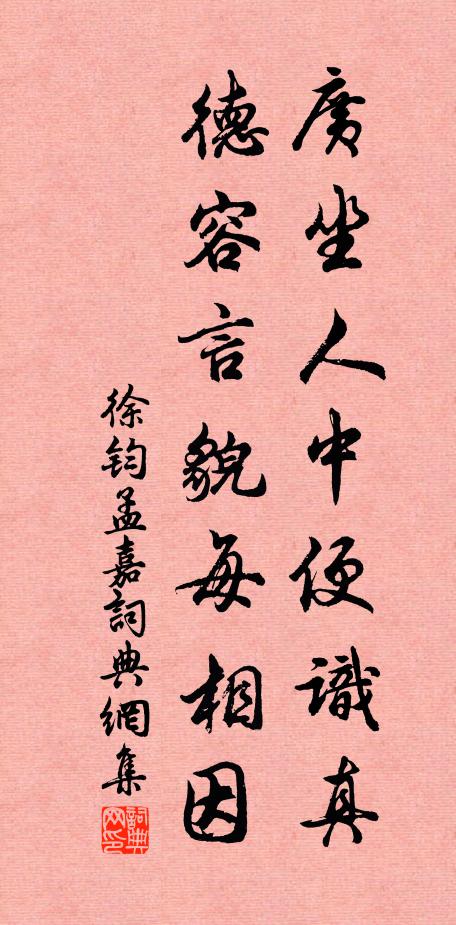 廣坐人中便識真
德容言貌每相因
徐鈞孟嘉詞典網集
詞典网印